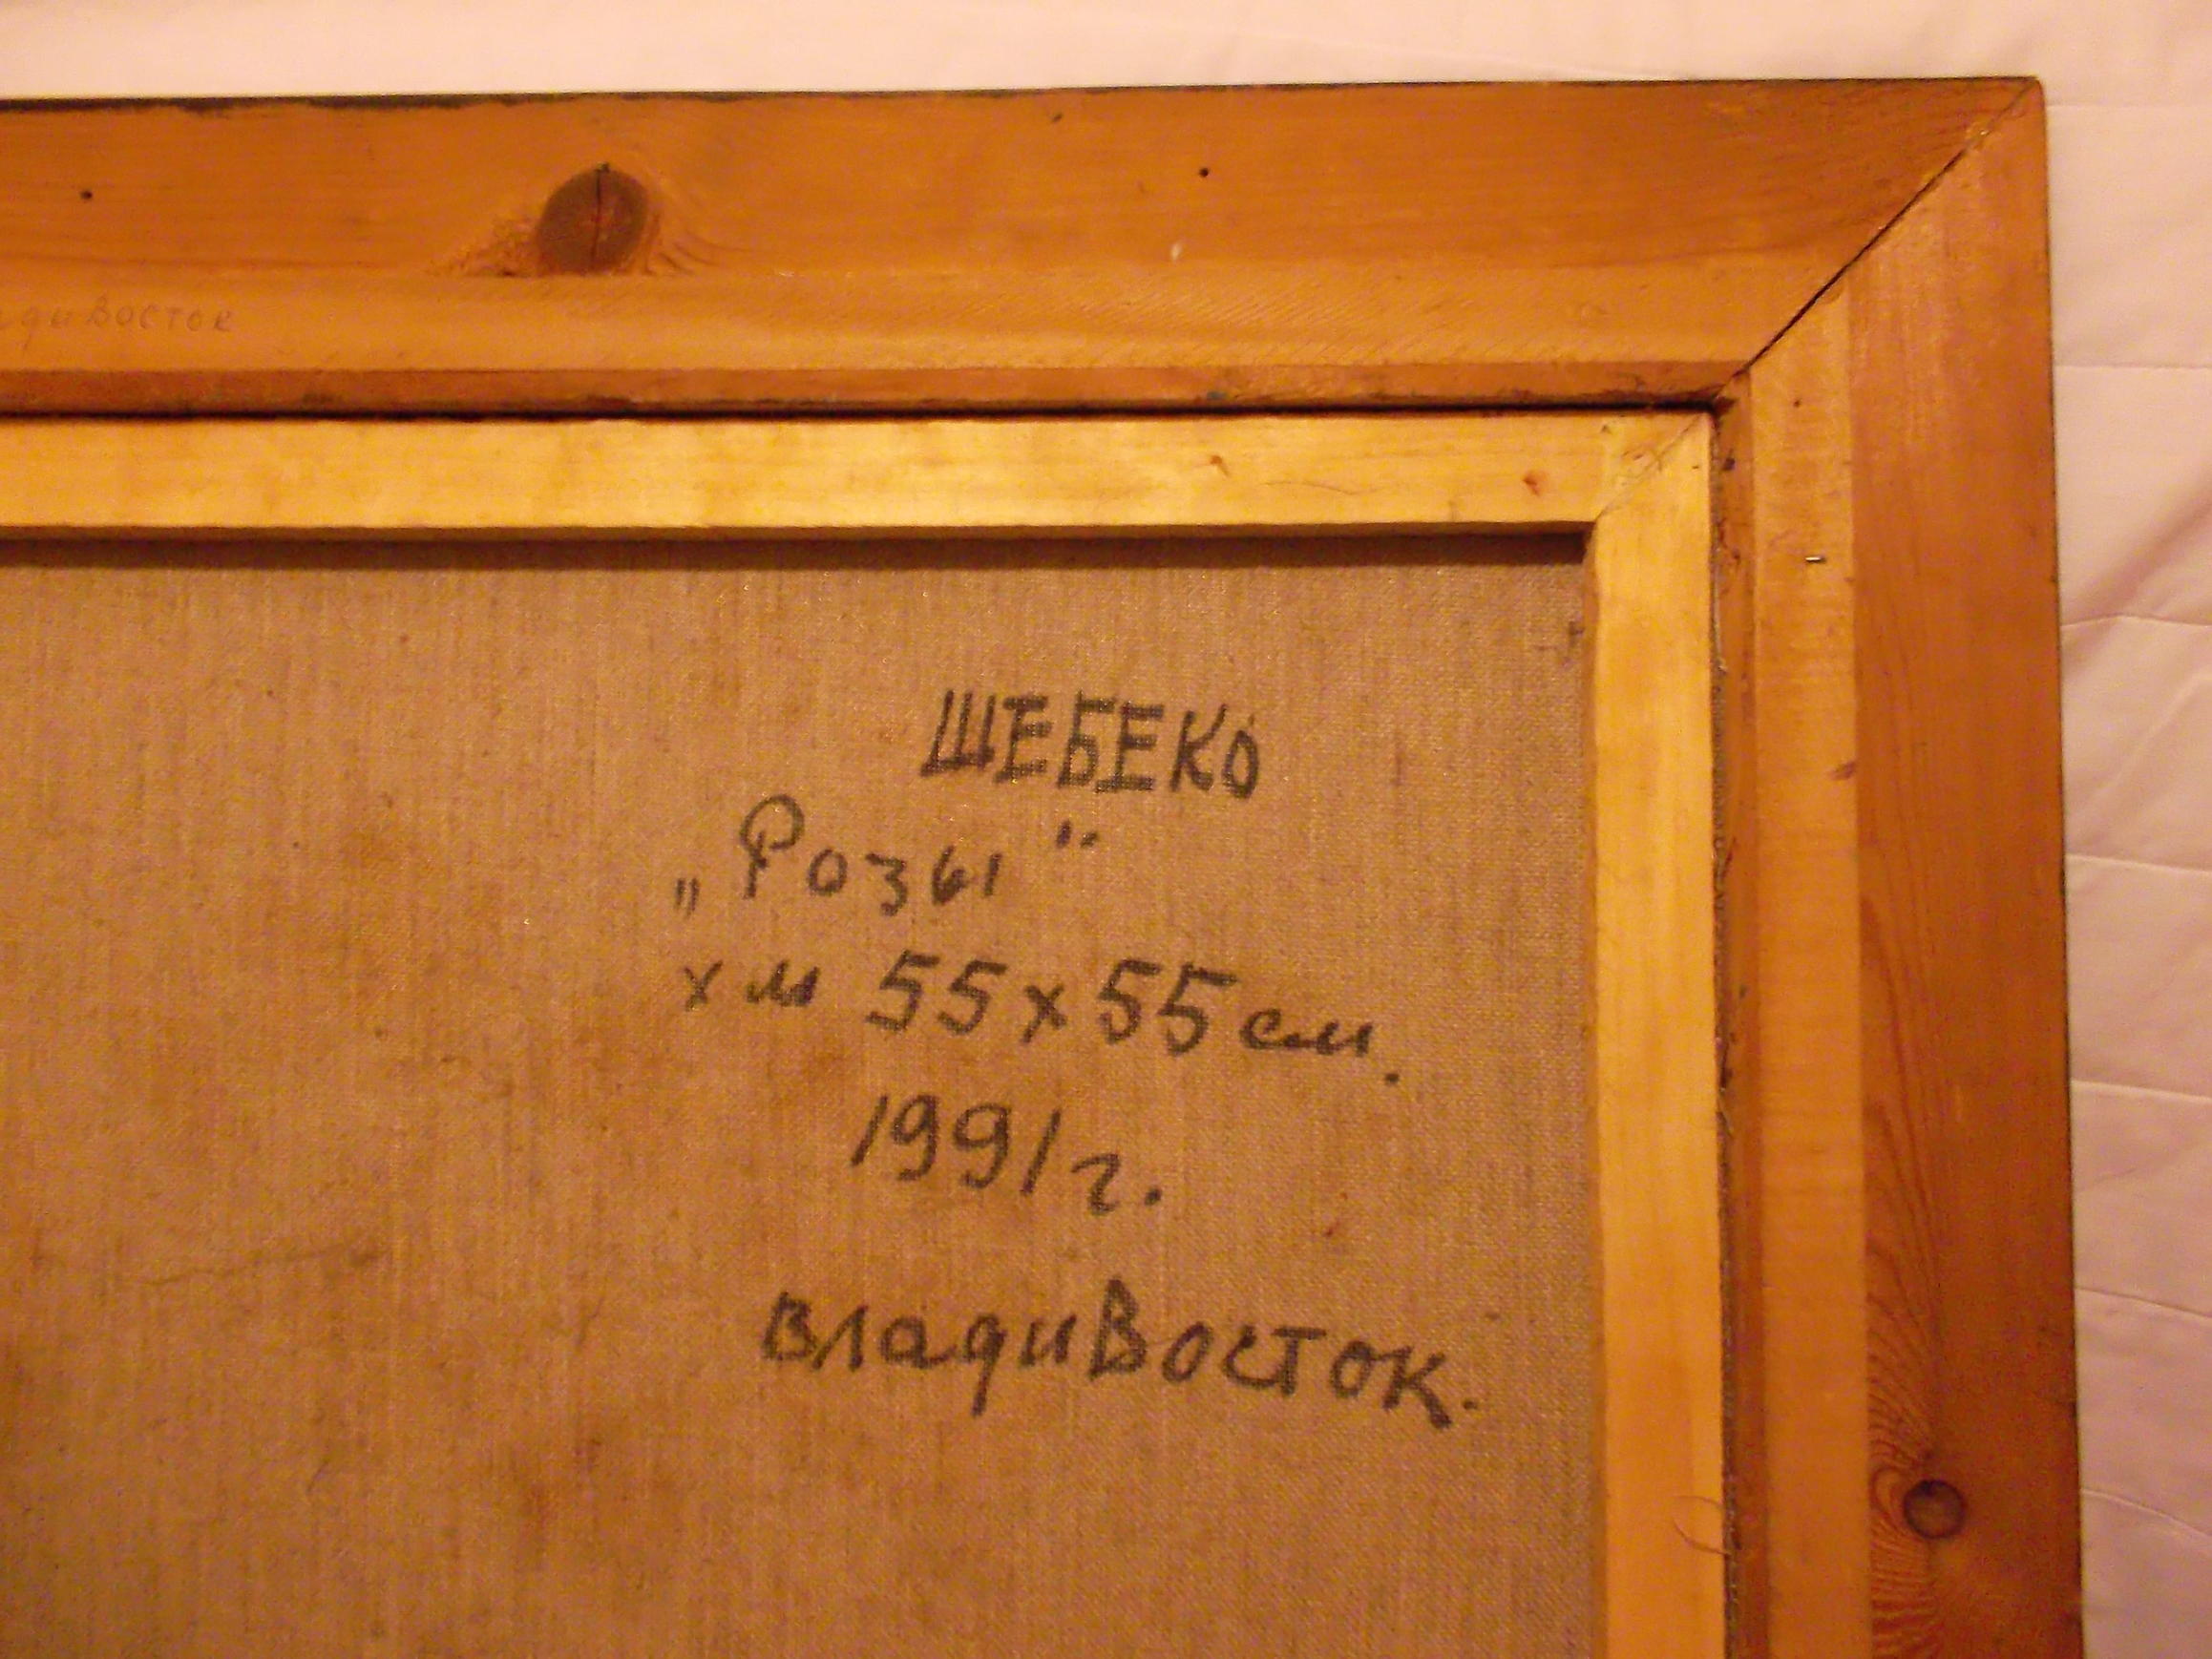 адивосток
ШЕБЕКО
„Розы"
хм 55х55см.
1991г.
владиВосток.